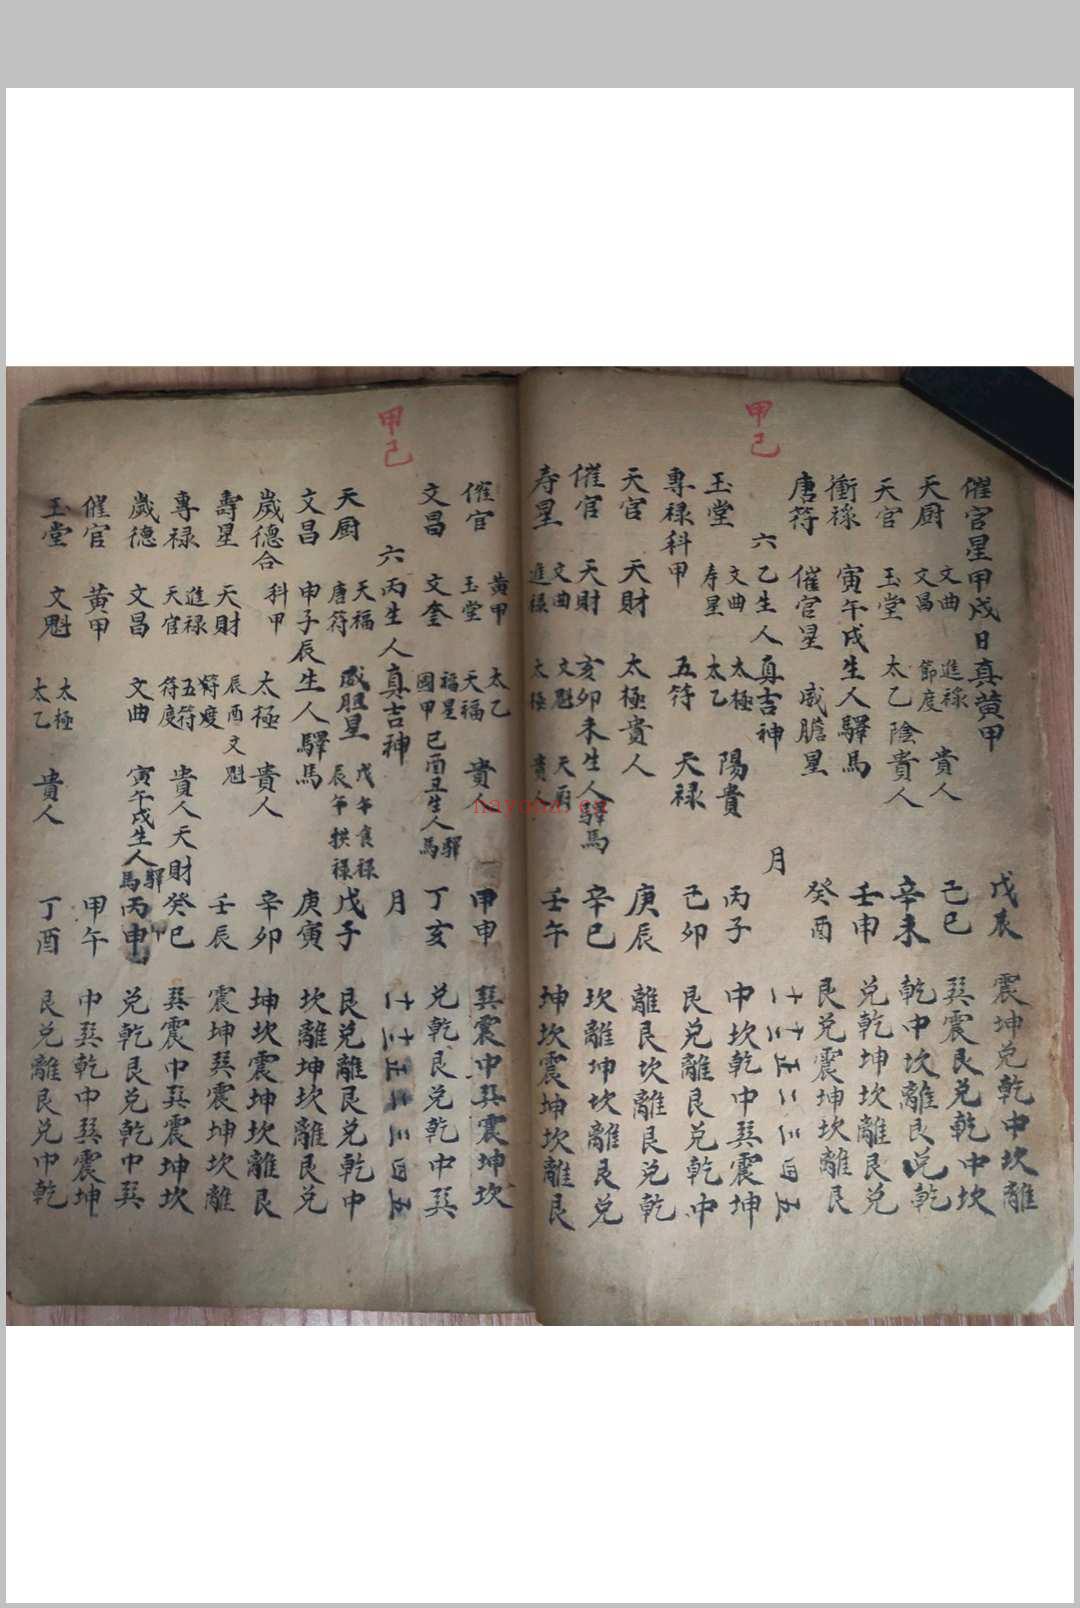 甲己
催官星甲戌日真黄甲 戊辰 震坤兑乾中坎離
天厨 文曲 文昌 進禄 節度 貴人 己巳 巽震艮兑乾中坎
天官 玉堂 太乙 陰貴人 辛未 乾中坎離艮兑乾
衝禄 寅午戌生人驛馬 壬申 兑乾坤坎離艮兑
唐符 催官星 威膽星 癸酉 艮兑震坤坎離艮
六乙生人真吉神 月
玉堂 文曲 寿星 太極 太乙 陽貴 丙子 中坎乾中巽震坤
專禄科甲 五符 天禄 己卯 艮兑離艮兑乾中
天官 天財 太極貴人 庚辰 離艮坎離艮兑乾
催官 天財 亥卯未生人驛馬 辛巳 坎離坤坎離艮兑
寿星 文曲 進禄 文魁 太極 天厨 貴人 壬午 坤坎震坤坎離艮
甲己
催官 黄甲 玉堂 太乙 天福 貴人 甲申 巽震中巽震坤坎
文昌 文奎 福星 國甲 巳酉丑生人驛馬 丁亥 兑乾艮兑乾中巽
六丙生人真吉神 月
天厨 天福 唐符 威胆星 戊午食禄 辰午拱禄 戊子 艮兑離艮兑乾中
文昌 申子辰生人驛馬 庚寅 坎離坤坎離艮兑
歲德合 科甲 太極 貴人 辛卯 坤坎震坤坎離艮
壽星 天財 辰酉文魁 壬辰 震坤巽震坤坎離
專禄 進禄 天官 五符 符度 貴人天財 癸巳 巽震中巽震坤坎
歲德 文昌 文曲 寅午戌生人驛馬 丙申 兑乾艮兑乾中巽
催官 黄甲 甲午 中巽乾中巽震坤
玉堂 文魁 太極 太乙 貴人 丁酉 艮兑離艮兑中乾